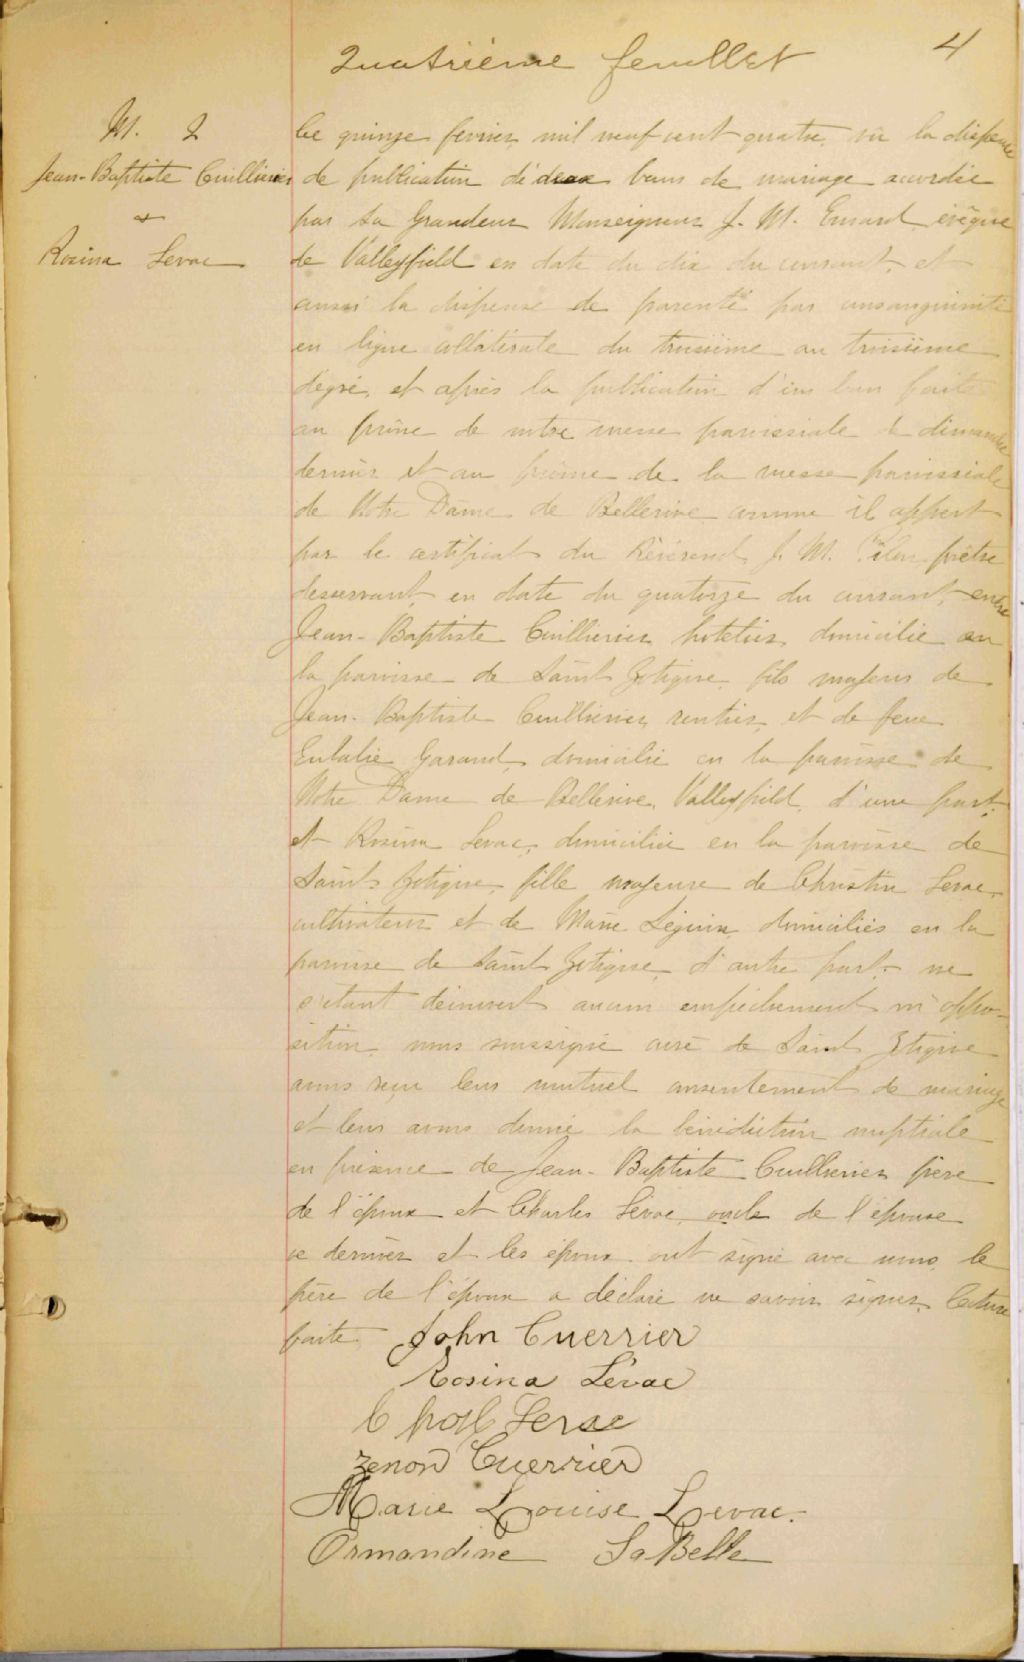 Quatrième feuillet
4
M. 2
Jean-Baptiste Cuillierier
&
Rosina Levac
Le quinze février mil neuf cent quatre, vu la dispense
de publication de deux bans de mariage accordée
par Sa Grandeur Monseigneur J. M. Emard évêque
de Valleyfield en date du dix du courant, et
aussi la dispense de parenté par consanguinité
en ligne collatérale du troisième au troisième
degré, et après la publication d'un ban faite
au prône de notre messe paroissiale de dimanche
dernier et au prône de la messe paroissiale
de Notre Dame de Bellerive comme il appert
par le certificat du Révérend J. M. prêtre
desservant, en date du quatorze du courant, entre
Jean-Baptiste Cuillierier hotelier, domicilié en
la paroisse de Saint Zotique, fils majeur de
Jean-Baptiste Cuillierier, rentier, et de feue
Eulalie Garand, domicilié en la paroisse de
Notre Dame de Bellerive, Valleyfield, d'une part;
et Rosina Levac, domiciliée en la paroisse de
Saint Zotique, fille majeure de Christin Levac,
cultivateur et de Marie Séguin, domiciliés en la
paroisse de Saint Zotique, d'autre part; ne
s'étant découvert aucun empêchement ni oppo-
sition, nous soussigné curé de Saint Zotique
avons reçu leur mutuel consentement de mariage
et leur avons donné la bénédiction nuptiale
en présence de Jean-Baptiste Cuillierier père
de l'époux et Charles Levac, oncle de l'épouse
ce dernier et les époux ont signé avec nous, le
père de l'époux a déclaré ne savoir signer. Lecture
faite. John Cuerrier
Rosina Lévac
C Levac
Zenon Cuerrier
Marie Louise Levac.
Ormandine LaBelle